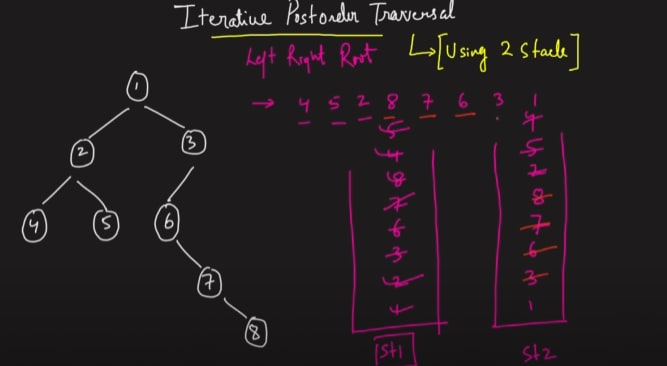 Iterative Postorder Traversal
Left Right Root
[Using 2 Stack]
→ 4 5 2 8 7 6 3 1
1
2
3
4
5
6
7
8
5
4
8
7
6
3
2
1
St1
4
5
2
8
7
6
3
1
St2